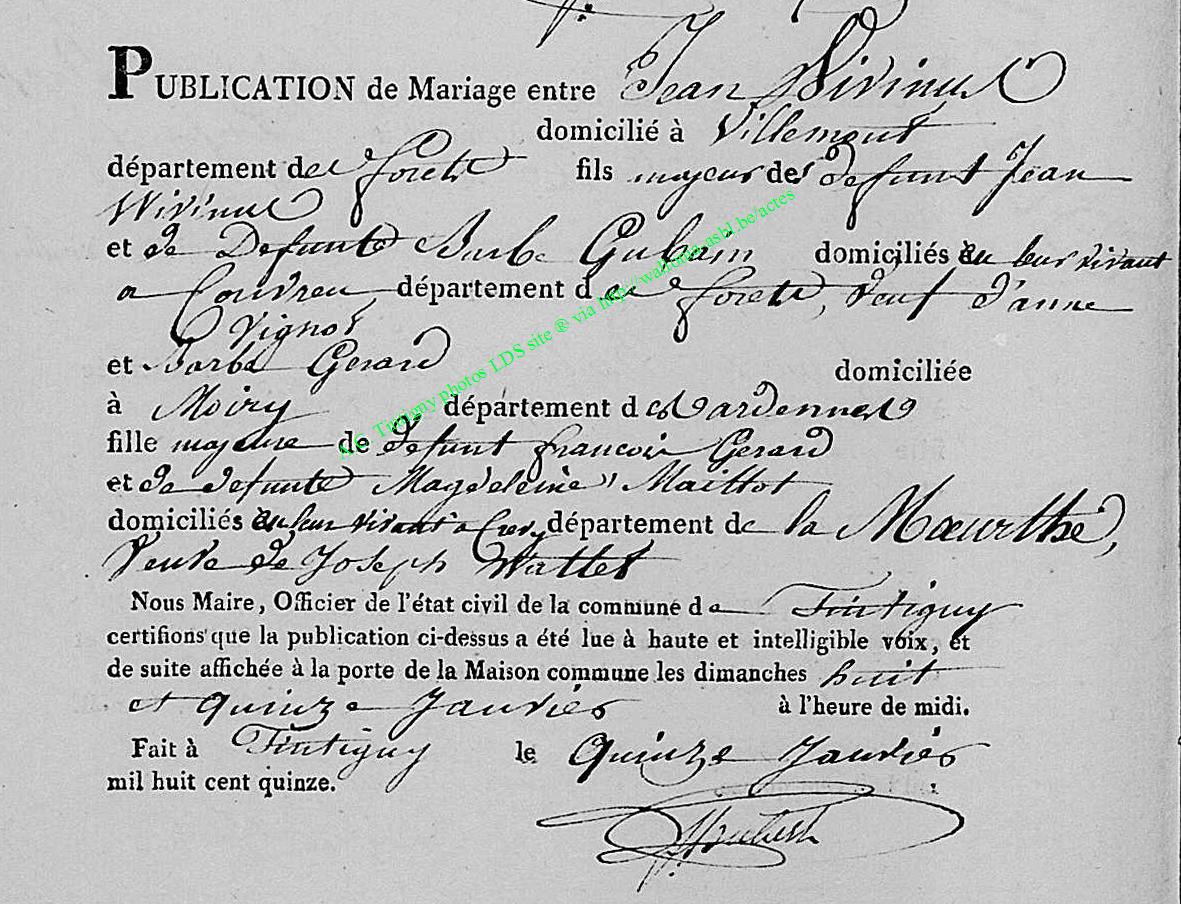 PUBLICATION de Mariage entre Jean Wivinus
domicilié à Villemont
département des forets fils majeur de defunt Jean
Wivinus
et de Defunte Barbe Gubain domiciliés en leur vivant
a Convreu, département des forets, veuf d'anne
Vignol
et Barbe Gerard domiciliée
à Moiry département des ardennes
fille majeure de defunt francois Gerard
et de defunte Magdeleine Maillot
domiciliés en leur vivant a département de la Mœurthe,
Veuve de Joseph Wattet
Nous Maire, Officier de l'état civil de la commune de Tintigny
certifions que la publication ci-dessus a été lue à haute et intelligible voix, et
de suite affichée à la porte de la Maison commune les dimanches huit
et quinze Janvier à l'heure de midi.
Fait à Tintigny le Quinze Janvier
mil huit cent quinze.
A.C. Tintigny photos LDS site ® via http://wallonia-asbl.be/actes